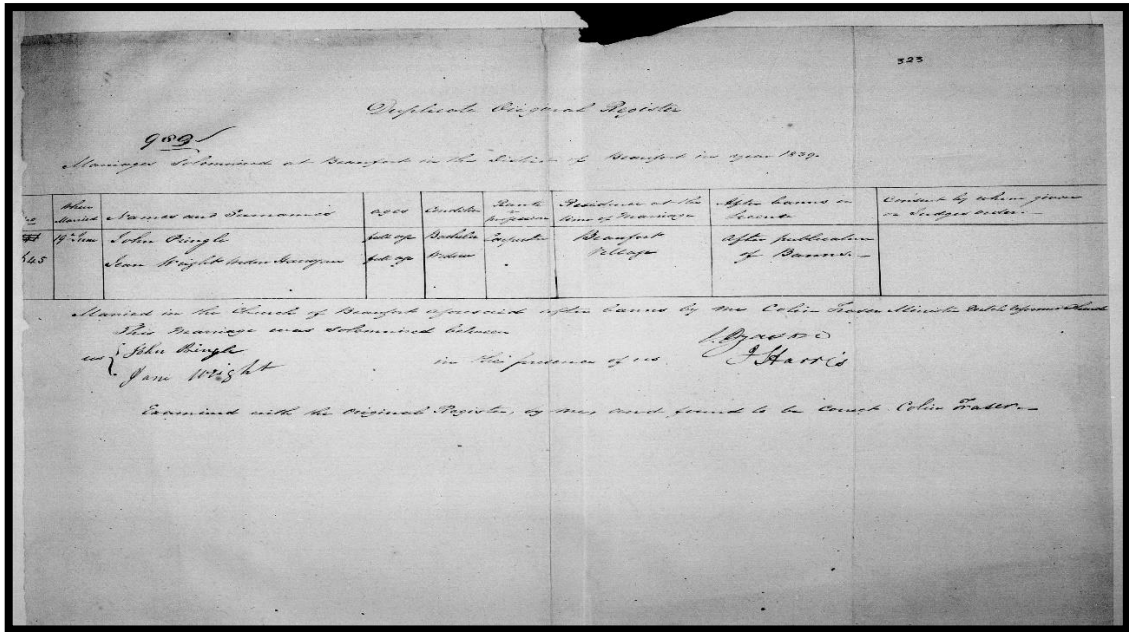 323
Duplicate Original Register
989
Marriages Solemnized at Beaufort in the District of Beaufort in year 1839.
When Married
Names and Surnames
ages
Condition
Rank or profession
Residence at the time of Marriage
After banns or License
Consent by whom given or Judges order
19th June
John Pringle
full age
Bachelor
Carpenter
Beaufort Village
After publication of Banns
45
Jean Wright Widow
full age
Widow
Married in the Church of Beaufort aforesaid after banns by me Colin Fraser Minister Dutch Reformed Church
This Marriage was solemnized between
us John Pringle
Jane Wright
in the presence of us
J Harris
Examined with the original Register, by me, and found to be correct Colin Fraser